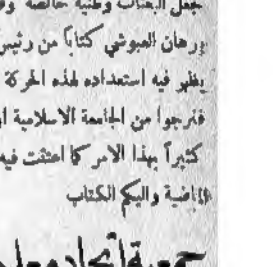 جعل البعثات وطنية خالصة
برهان العبوشي كتاباً من رئيس
يظهر فيه استعداده لهذه الحركة
فنرجوا من الجامعة الاسلامية
كثيراً بهذا الامر كما اعتقت فيه
الماضية واليكم الكتاب
جمعية اتحاد